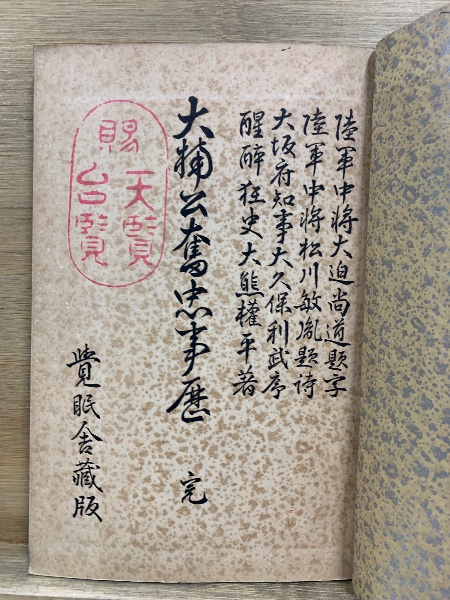 陸軍中將大迫尚道題字
陸軍中將松川敏胤題诗
大坂府知事大久保利武序
醒醉狂史大熊權平著
大楠公奮忠事歴 完
賜天覽台覽
覺眠舍藏版